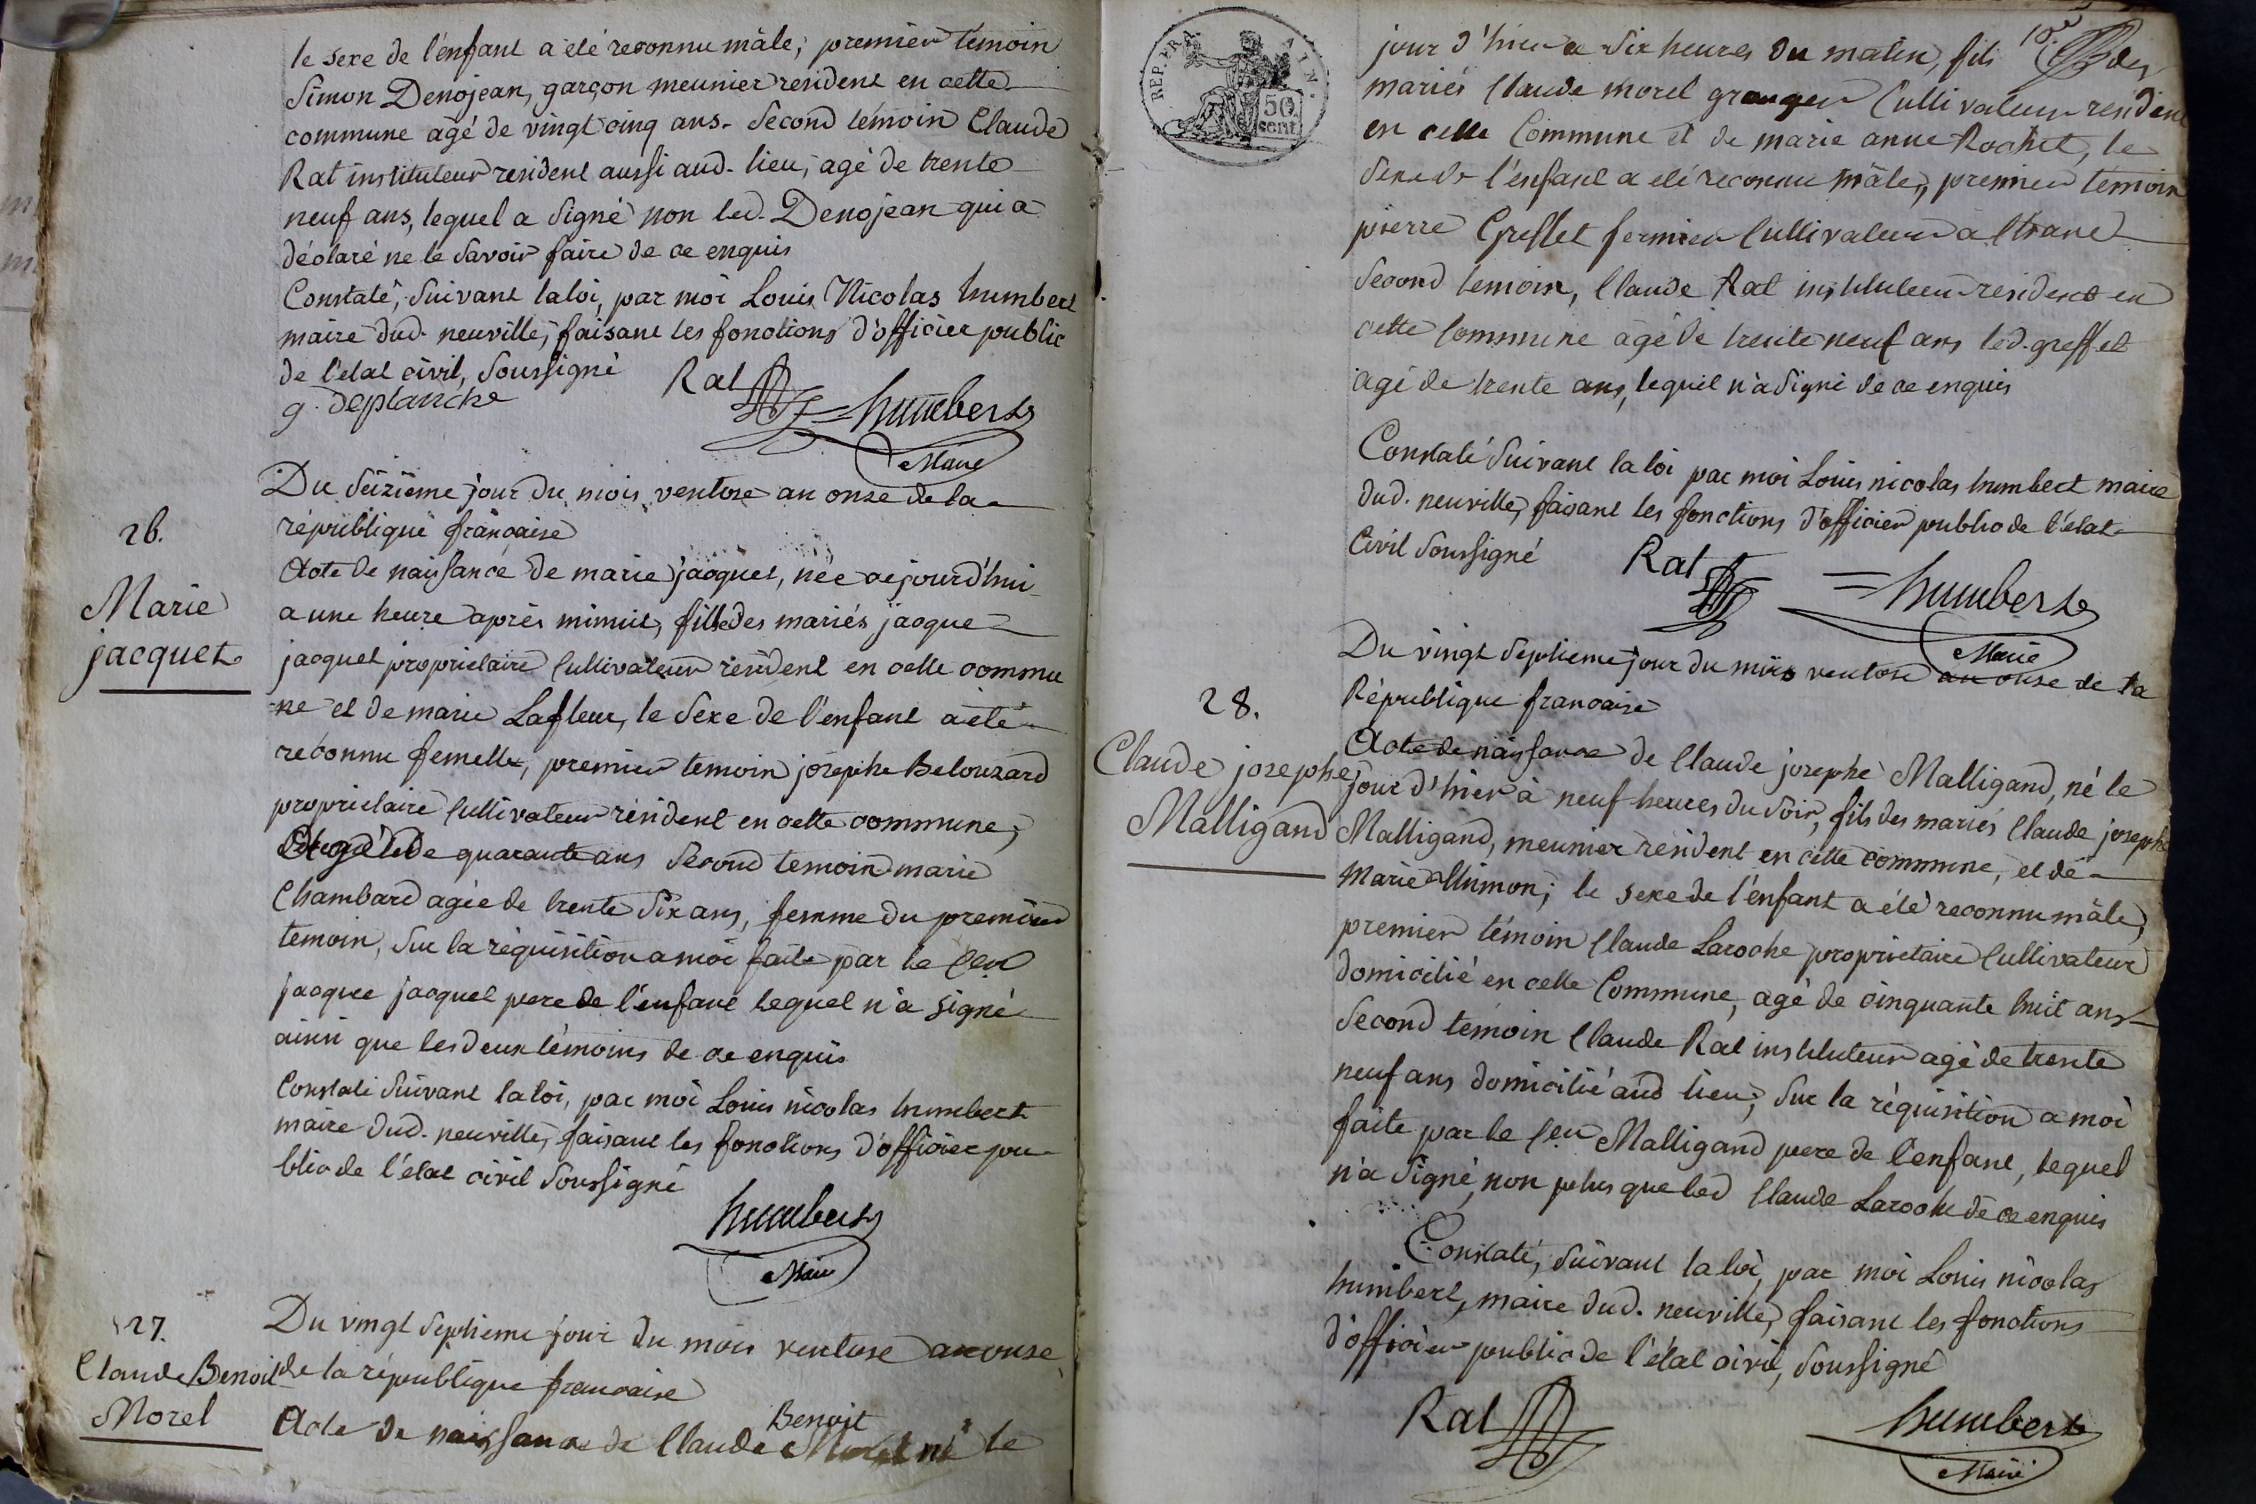 le sexe de l'enfant a été reconnu mâle; premier temoin
Simon Denojean, garçon meunier resident en cette
commune agé de vingt cinq ans. Second témoin Claude
Rat instituteur resident aussi aud. lieu, agé de trente
neuf ans, lequel a signé non led. Denojean qui a
déclaré ne le savoir faire de ce enquis
Constaté, suivant la loi, par moi Louis Nicolas humbert
maire dud. neuville, faisant les fonctions d'officier public
de l'etat civil, soussigné
g. deplanche
Rat
humbert
Maire
26.
Marie
jacquet
Du seizieme jour du mois ventose an onse de la
république française
Acte de naissance de marie jacquet, née cejourd'hui
a une heure après minuit, fille des mariés jacque
jacquet proprietaire Cultivateur resident en cette commu
ne et de marie Lafleur, le sexe de l'enfant a été
reconnu femelle, premier temoin josephe Belouzard
proprietaire Cultivateur résident en cette commune,
agé de quarante ans second temoin marie
Chambard agée de trente six ans, femme du premier
temoin, sur la réquisition a moi faite par le Cen
jacque jacquet pere de l'enfant lequel n'a signé
ainsi que les deux témoins de ce enquis
Constaté suivant la loi, par moi Louis nicolas humbert
maire dud. neuville, faisant les fonctions d'officier pu
blic de l'état civil soussigné
humbert
Maire
27.
Claude Benoit
Morel
Du vingt septieme jour du mois ventose an onse
de la république francaise
Benoit
Acte de naissance de Claude Morel né le
REP. FRA
50
cent
jour d'hier a six heures du matin, fils des
mariés Claude morel granger Cultivateur resident
en cette Commune et de marie anne Rochet, le
sexe de l'enfant a été reconnu mâle, premier temoin
pierre Greffet fermier Cultivateur a
second temoin, Claude Rat instituteur résident en
cette Commune agé de trente neuf ans led. greffet
agé de trente ans, lequel n'a signé de ce enquis
Constaté suivant la loi par moi Louis nicolas humbert maire
dud. neuville, faisant les fonctions d'officier public de l'état
Civil soussigné
Rat
humbert
Maire
28.
Claude josephe
Malligand
Du vingt septieme jour du mois ventose an onse de la
République francaise
Acte de naissance de Claude josephe Malligand, né le
jour d'hier à neuf heures du soir, fils des mariés Claude josephe
Malligand, meunier résident en cette commune, et de
Marie ; le sexe de l'enfant a été reconnu mâle,
premier témoin Claude Laroche proprietaire Cultivateur
domicilié en cette Commune, agé de cinquante huit ans
Second temoin Claude Rat instituteur agé de trente
neuf ans domicilié aud lieu, sur la réquisition a moi
faite par le Cen Malligand pere de l'enfant, lequel
n'a signé, non plus que led Claude Laroche de ce enquis
Constaté, suivant la loi, par moi Louis nicolas
humbert, maire dud. neuville, faisant les fonctions
d'officier public de l'état civil, soussigné
Rat
humbert
Maire